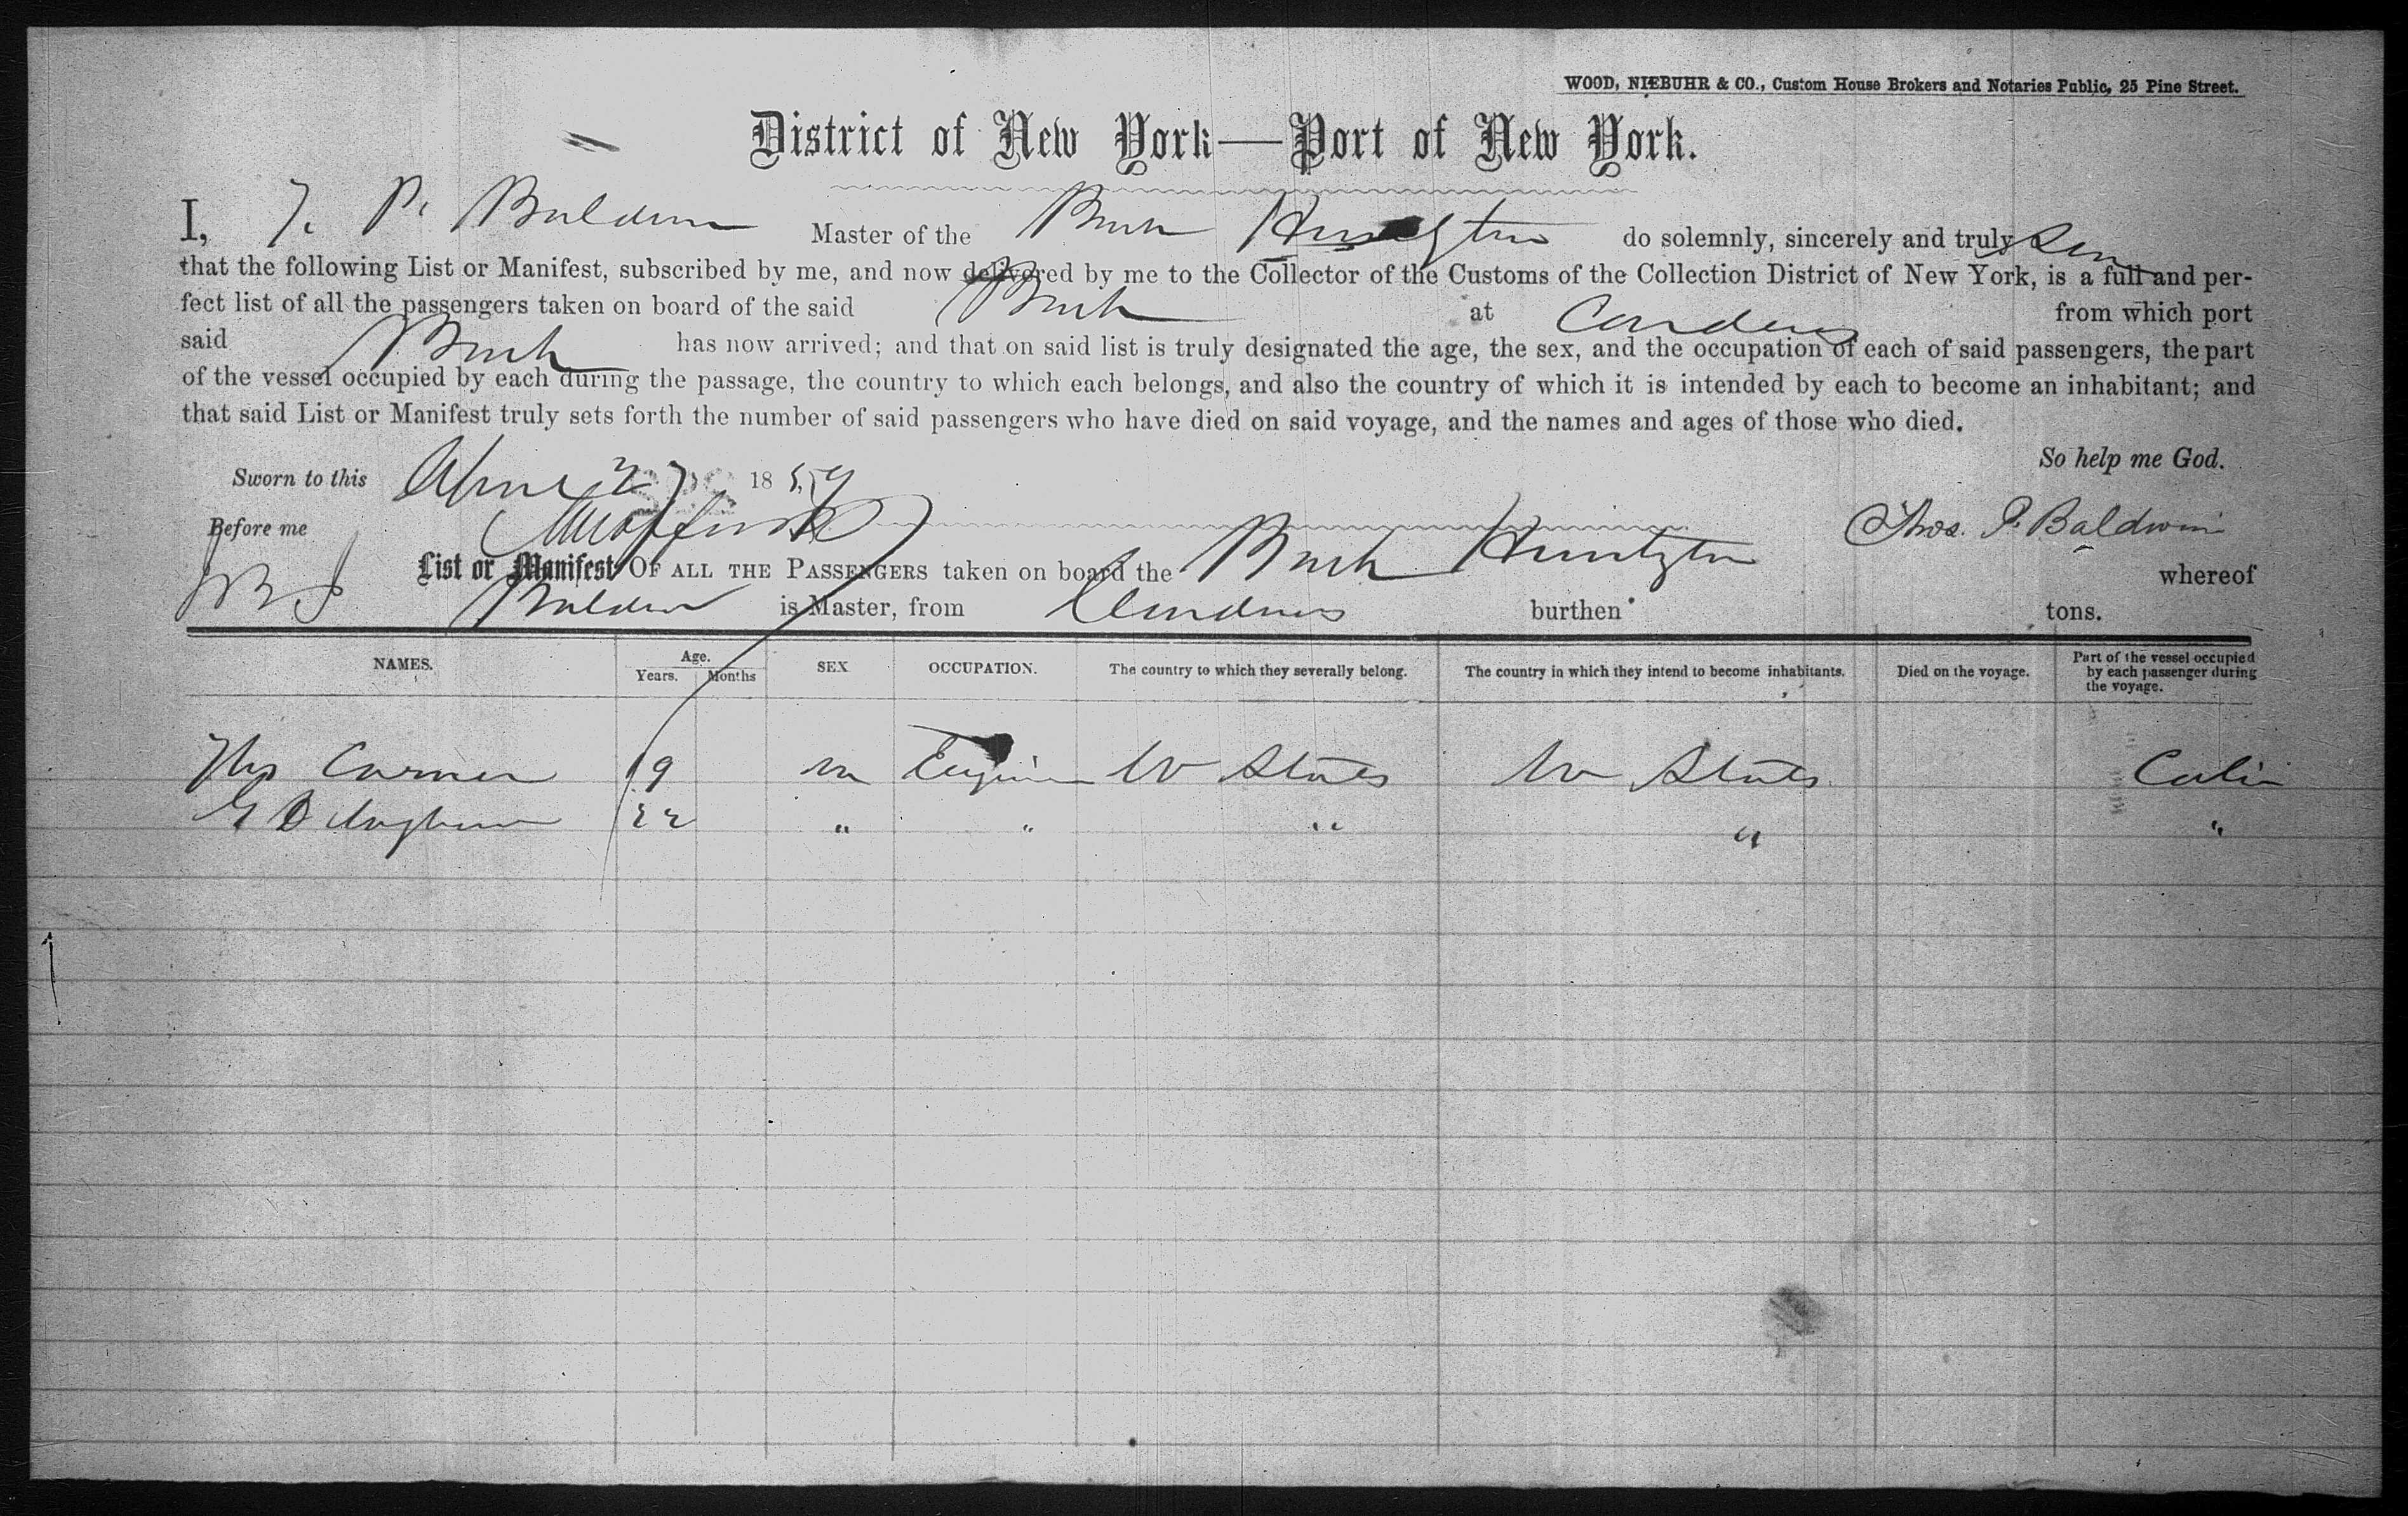 WOOD, NIEBUHR & CO., Custom House Brokers and Notaries Public, 25 Pine Street.
District of New York—Port of New York.
I, T. P. Baldwin Master of the Bark Huntington do solemnly, sincerely and truly
that the following List or Manifest, subscribed by me, and now delivered by me to the Collector of the Customs of the Collection District of New York, is a full and per-
fect list of all the passengers taken on board of the said Bark at Cardenas from which port
said Bark has now arrived; and that on said list is truly designated the age, the sex, and the occupation of each of said passengers, the part
of the vessel occupied by each during the passage, the country to which each belongs, and also the country of which it is intended by each to become an inhabitant; and
that said List or Manifest truly sets forth the number of said passengers who have died on said voyage, and the names and ages of those who died.
So help me God.
Sworn to this April 27 1859
Before me Thos. P. Baldwin
List or Manifest OF ALL THE PASSENGERS taken on board the Bark Huntington whereof
Baldwin is Master, from Cardenas burthen tons.
NAMES. Age. Years. Months SEX OCCUPATION. The country to which they severally belong. The country in which they intend to become inhabitants. Died on the voyage. Part of the vessel occupied by each passenger during the voyage.
Thos 19 m Engineer U States U States Cabin
G D Ingham 22 " " " " "